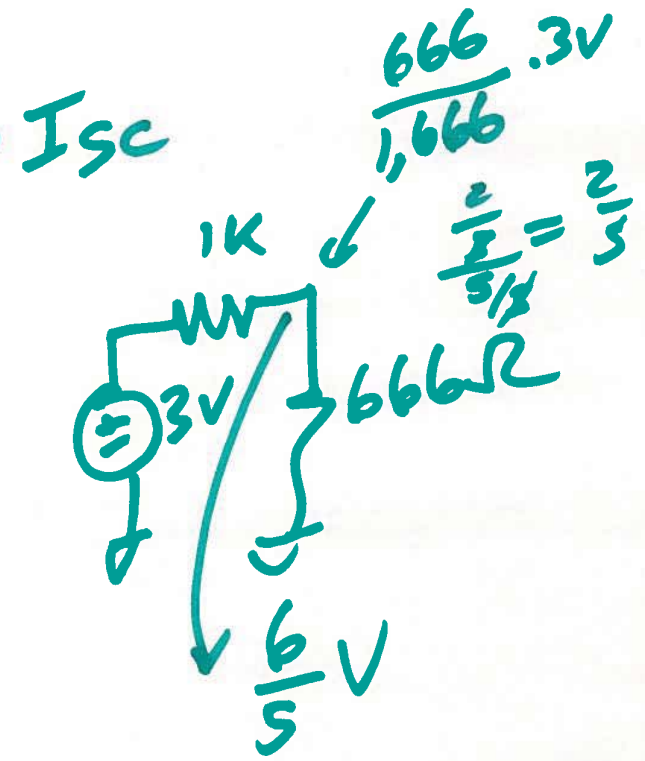 Isc
666/1,666 .3V
2/3 / 5/3 = 2/5
1K
3V
666Ω
6/5 V